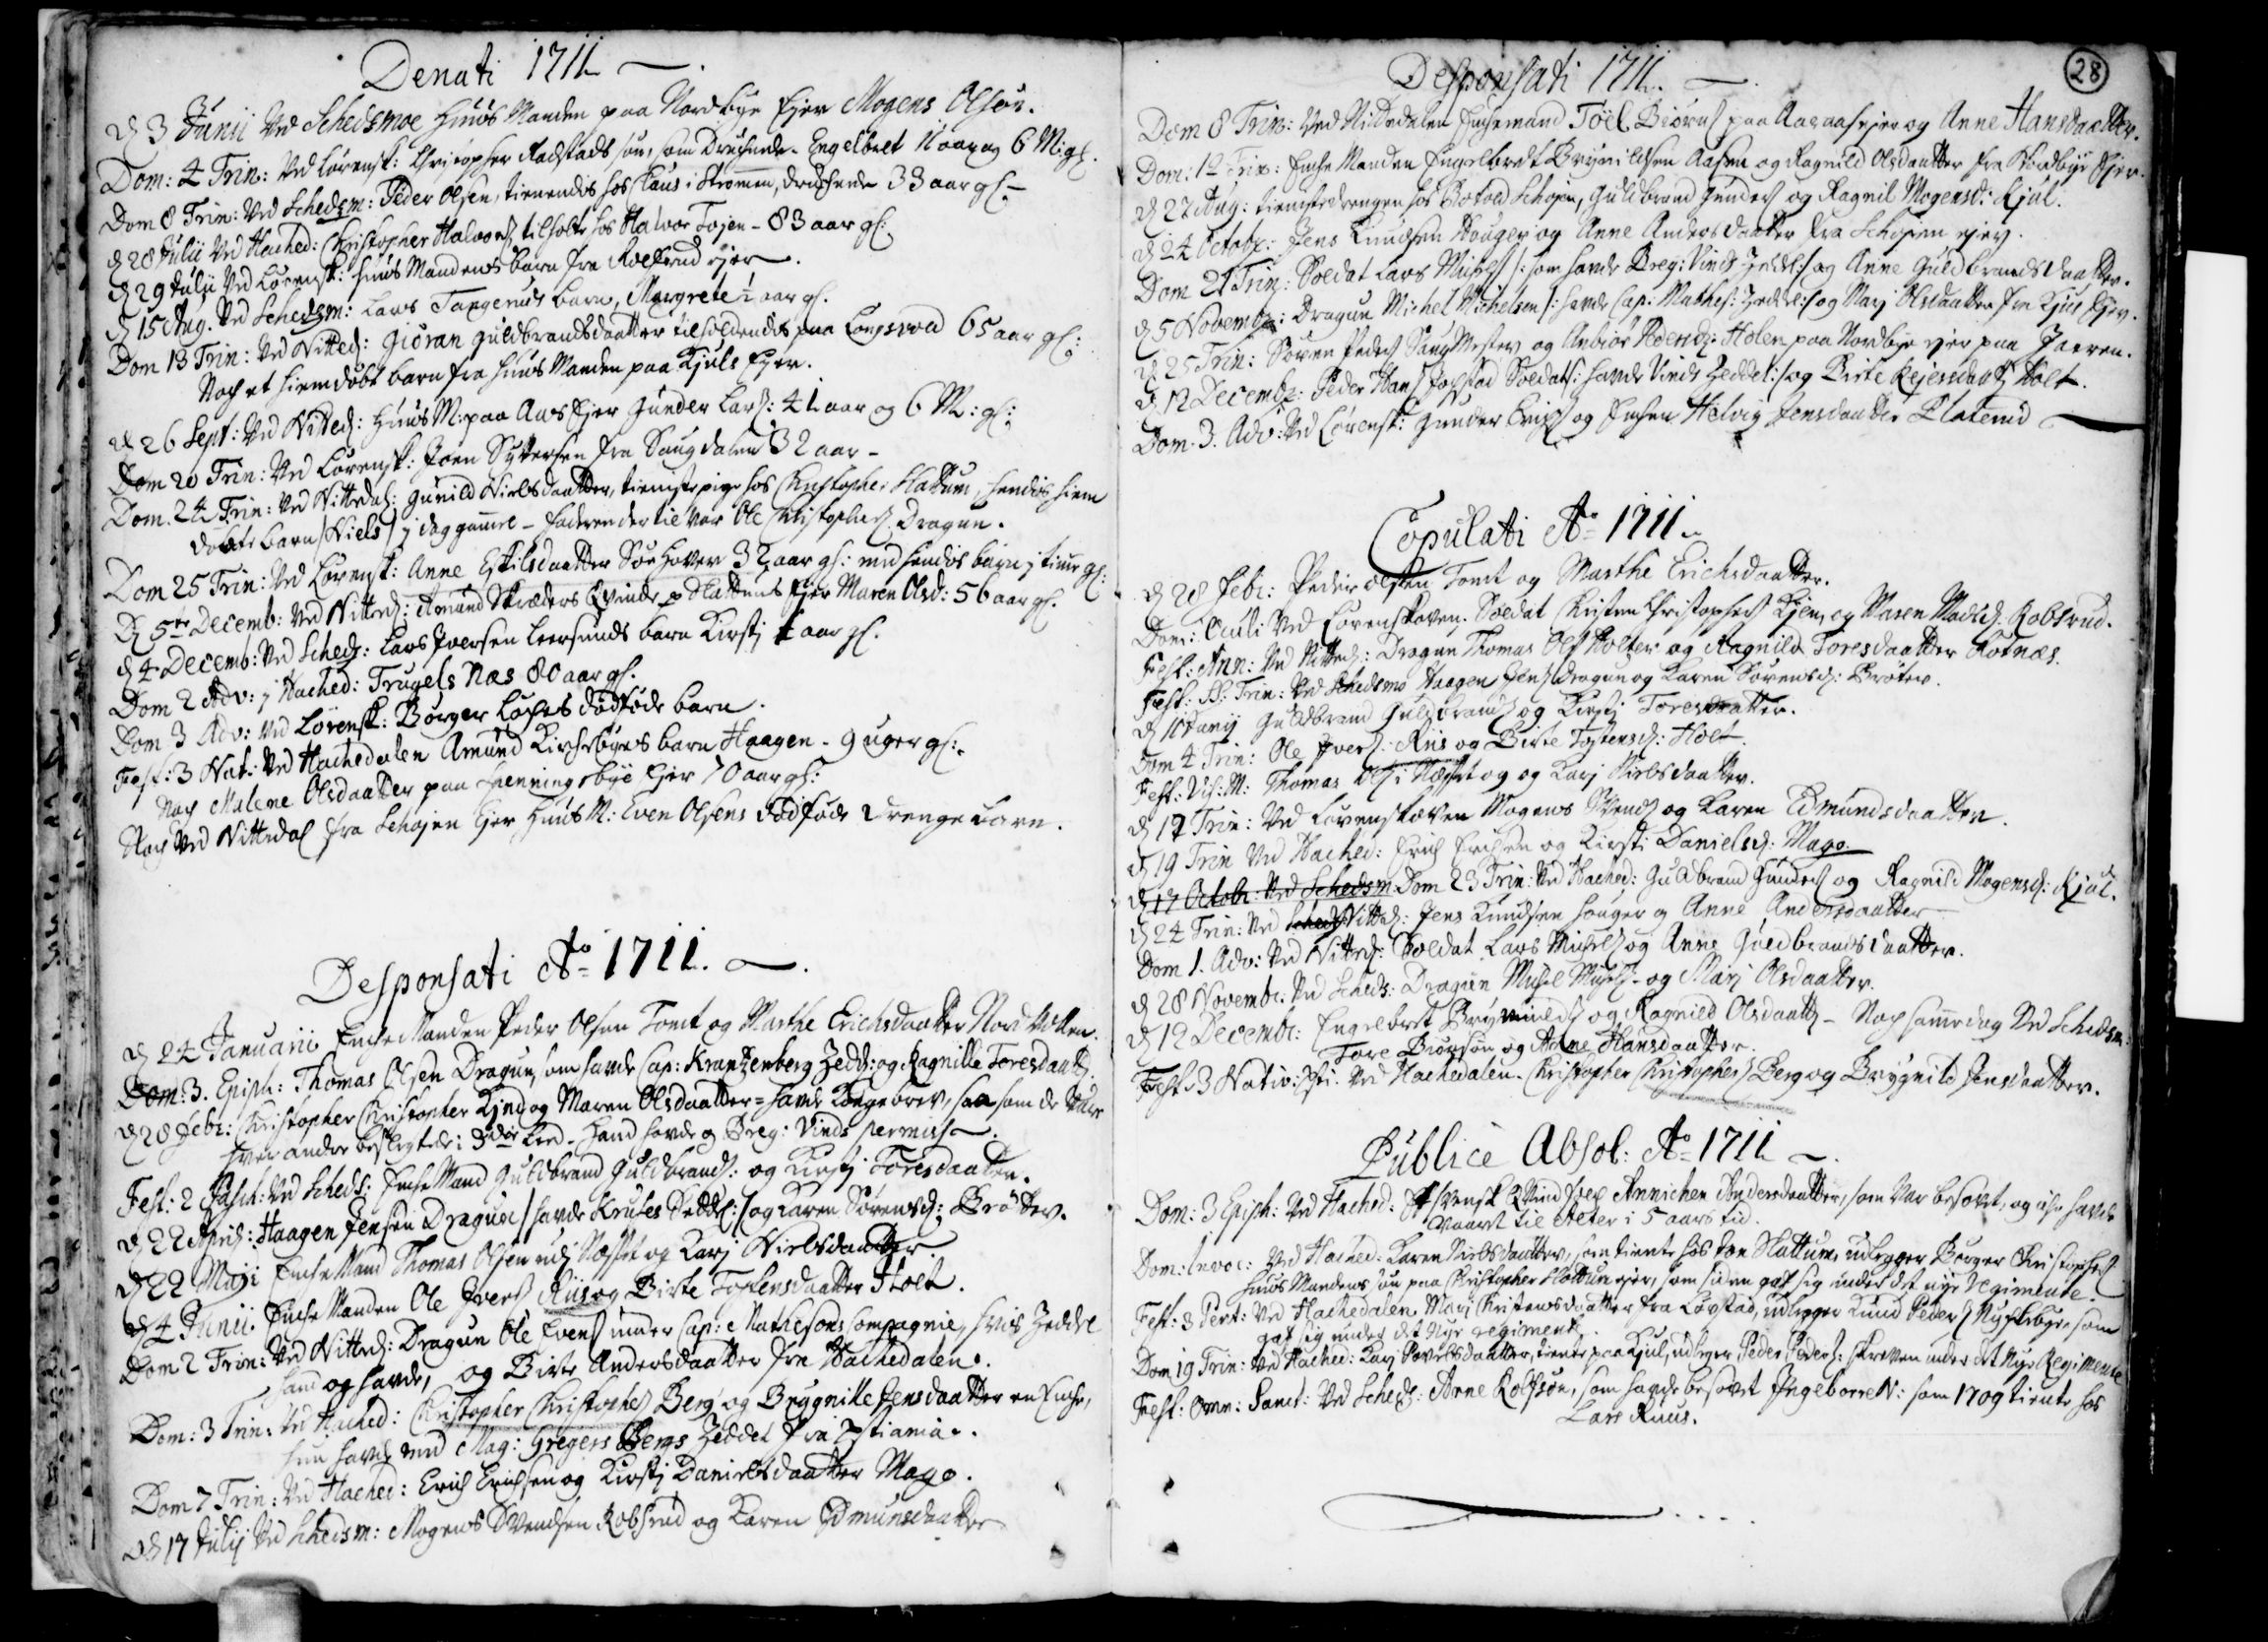 Denati 1711
D 3 Junii Ved Schedsmoe Huus Manden paa Nordbye Ejer Mogens Olsøn.
Dom: 4 Trin: Ved Lørensk: Christopher Rachstads søn, som Druchnede Engelbret 11 aar og 6 M: gl.
Dom 8 Trin: Ved Schedsm: Peder Olsen, tienendis hos Claus i Strømmen, druchnede 33 aar gl.
D 28 Julii Ved Hached: Christopher Halvors: tilholt hos Halvor Tøjen - 83 aar gl.
D 29 Julii Ved Lørensk: Huus Mandens barn fra Rolfsrud ejer.
D 15 Aug. Ved Schedsm: Lars Tangeruds barn, Margrete 1 aar gl.
Dom 13 Trin: Ved Nitted: Giøran Guldbrandsdaatter tilholdendes paa Longsvold 65 aar gl:
Noch et hiemdøbt barn fra Huus Manden paa Kjuls Ejer.
D 26 Sept: Ved Nitted: Huus M: paa Aas Ejer Gunder Lars: 41 aar og 6 M: gl:
Dom 20 Trin: Ved Lørensk: Joen Syversen fra Saugdalen 32 aar -
Dom. 24 Trin: Ved Nittedal: Gunild Nielsdaatter, tieniste pige hos Christopher Slattum, hendis hiem
døbte barn /Niels/ j dag gammel - faderen dertil var Ole Christophers Dragun.
Dom 25 Trin: Ved Lørensk: Anne Eskilsdaatter Sørhoven 32 aar gl: med hendis barn j time gl:
D 5te Decemb: Ved Nitted: Amund Skræders Qvinde p Slattums Ejer Maren Olsd: 56 aar gl.
D 4 Decemb: Ved Scheds: Lars Iversen Leersunds barn Kirstj 1 aar gl.
Dom 2 Adv: j Hached: Trugels Næs 80 aar gl.
Dom 3 Adv: Ved Lørensk: Børger Lochs dødføde barn.
Fest: 3 Nat: Ved Hachedalen Amund Kirchebyes barn Haagen - 9 uger gl:
Noch Malene Olsdaatter paa Henningsbye Ejer 70 aar gl:
Noch Ved Nittedal fra Schøjen Ejer Huus M: Even Olsens dødføde drengebarn.
Desponsati Ao 1711.
D 24 Januarii Enche Manden Peder Olsen Tomt og Marthe Erichsdaatter Nord Vollen.
Dom: 3. Epiph: Thomas Olsen Dragun, som havde Cap: Krantzenberg Zedd: og Ragnille Toresdaat.
D 28 Febr: Christopher Christopher Kjnd og Maren Olsdaatter = havde Konge brev, saa som de vare
hver andre beslegtede i 3die Leed - Hand havde og Oreg: Vinds permiss.
Fest: 2 Pasch: Ved Scheds: Enche Mand Guldbrand Guldbrands: og Kirstj Toresdaatter.
D 22 April: Haagen Jensen Dragun / havde Kruses Seddel:/ og Karen Sørensd: Brøtter.
D 22 Maji Enche Mand Thomas Olsen udj Næsset og Karj Nielsdaatter
D 4 Junii. Enche Manden Ole Ivers Riis og Birte Tostensdaatter Holt.
Dom 2 Trin: Ved Nitted: Dragun Ole Evens under Cap: Mathesons Compagnie, hvis Zeddel
hand og havde, og Birte Andersdaatter fra Hachedalen.
Dom: 3 Trin: Ved Hached: Christopher Christophers Berg og Brÿgnille Jensdaatter en Enche,
hun havde med Mag: Gregers Bergs Zeddel fra Xstiania.
Dom 7 Trin: Ved Hached: Erich Erichsen og Kirstj Danielsdaatter Mago.
D 17 Julij Ved Schedsm: Mogens Svendsen Robsrud og Karen Edmunsdaatter
28
Desponsati 1711.
Dom 8 Trin: Ved Nittedalen Enchemand Toel Biørns paa Aaraas ejer og Anne Hansdaatter.
Dom: 12 Trin: Enche Manden Engelbredt Brynildsen Aasen og Ragnild Olsdaatter fra Nordbye Ejer.
D 27 Aug: tienistedrengen hos Botold Schøjen, Guldbrand Gunders og Ragnil Mogensd: Kjul.
D 24 Octobr: Jens Knudsen Houger og Anne Andersdaatter fra Schøjen ejer.
Dom 21 Trin: Soldat Lars Michels /: som havde Oreg: Vinds Zeddel:/ og Anne Guldbrandsdaatter.
D 5 Novembr: Dragun Michel Michelsen /: havde Cap: Mathes: Zeddel:/ og Marj Olsdaatter fra Kjus Ejer.
D 25 Trin: Søren Peders Saug Mester og Anbiør Pedersd: Holen paa Nordbye ejer paa Jaeren.
D 12 Decembr: Peder Hans Jolstad Soldat /: havde Vinds Zeddel:/ og Birte Rejersdaatt Holt.
Dom. 3. Adv: Ved Lørensk: Gunder Erichs og Enchen Helvig Jensdaatter Platerud
Copulati Ao 1711.
D 28 Febr: Peder Olsen Tomt og Marthe Erichsdaatter.
Dom: Oculi Ved Lørenskoven. Soldat Christen Christophers Kjem og Maren Madsd: Robsrud.
Fest: Ann: Ved Nitted: Dragun Thomas Ols Holter og Ragnild Toresdaatter Rotnæs.
Fest: SS: Trin: Ved Schedsmo Haagen Jens dragun og Karen Sørensd: Brøter.
D 11 Junij Guldbrand Guldbrands og Kirstj Toresdaatter.
Dom 4 Trin: Ole Ivers: Riis og Birte Tostensd: Holt.
Fest: Vis: M: Thomas Ols i Næsset og og Karj Nielsdaatter.
D 17 Trin: Ved Lørenskoven Mogens Svends og Karen Edmundsdaatter.
D 19 Trin Ved Hached: Erich Erichsen og Kirsti Danielsd: Mago.
D 17 Octobr: Ved Schedsm Dom 23 Trin: Ved Hached: Guldbrand Gunders og Ragnild Mogensd: Kjul.
D 24 Trin: Ved Scheds Nitted: Jens Knudsen Houger og Anne Andersdaatter
Dom 1. Adv: Ved Nitted: Soldat Lars Michels og Anne Guldbrandsdaatter.
D 28 Novembr. Ved Scheds: Dragun Michel Michels - og Marj Olsdaatter.
D 12 Decembr: Engelbret Brynnilds og Ragnild Olsdaatt - Noch samme dag Ved Schedsm:
Tore Biørnsøn og Anne Hansdaatter.
Fest 3 Nativ: Xsti. Ved Hachedalen. Christopher Christophers Berg og Brÿgnild Jensdaatter.
Publicè Absol: Ao 1711
Dom: 3 Epiph: Ved Hached: Et svensk Qvindfolch Annichen Andersdaatter, som var besovet, og iche havde
vaaret til Alter i 5 aars tid.
Dom: Invoc: Ved Hached: Karen Nielsdaatter, som tiente hos Jon Slattum, udlegger Børger Christophers
Huus Mandens søn paa Christopher Slattum ejer, som siden gaf sig under det nye Regimente.
Fest: 3 Pent: Ved Hachedalen Marj Christensdaatter fra Løvstad, udlegger Knud Peders Nyschebye, som
gaf sig under det Nye regiment.
Dom 19 Trin: Ved Hached: Karj Povelsdaatter, tiente paa Kjul, udlegger Peder Peders: skreven under det Nye Regimente
Fest: Omn: Sanct: Ved Scheds: Arne Rolfsøn, som havde besovet Ingeborre N: som 1709 tiente hos
Lars Ruus.